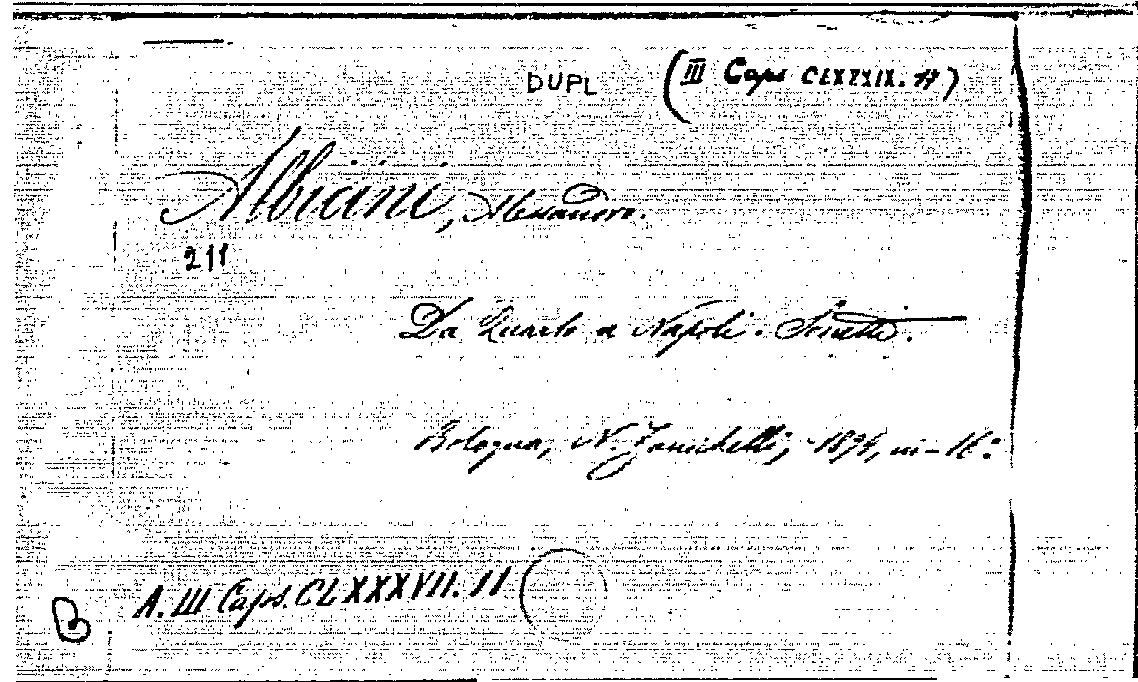 DUPL (III Caps CLXXXIX. 17)
Albicini, Alessandro.
211
Da Quarto a Napoli. Sonetti.
Bologna, N. Zanichelli, in-16:
A. III Caps. CLXXXVII. 11
B